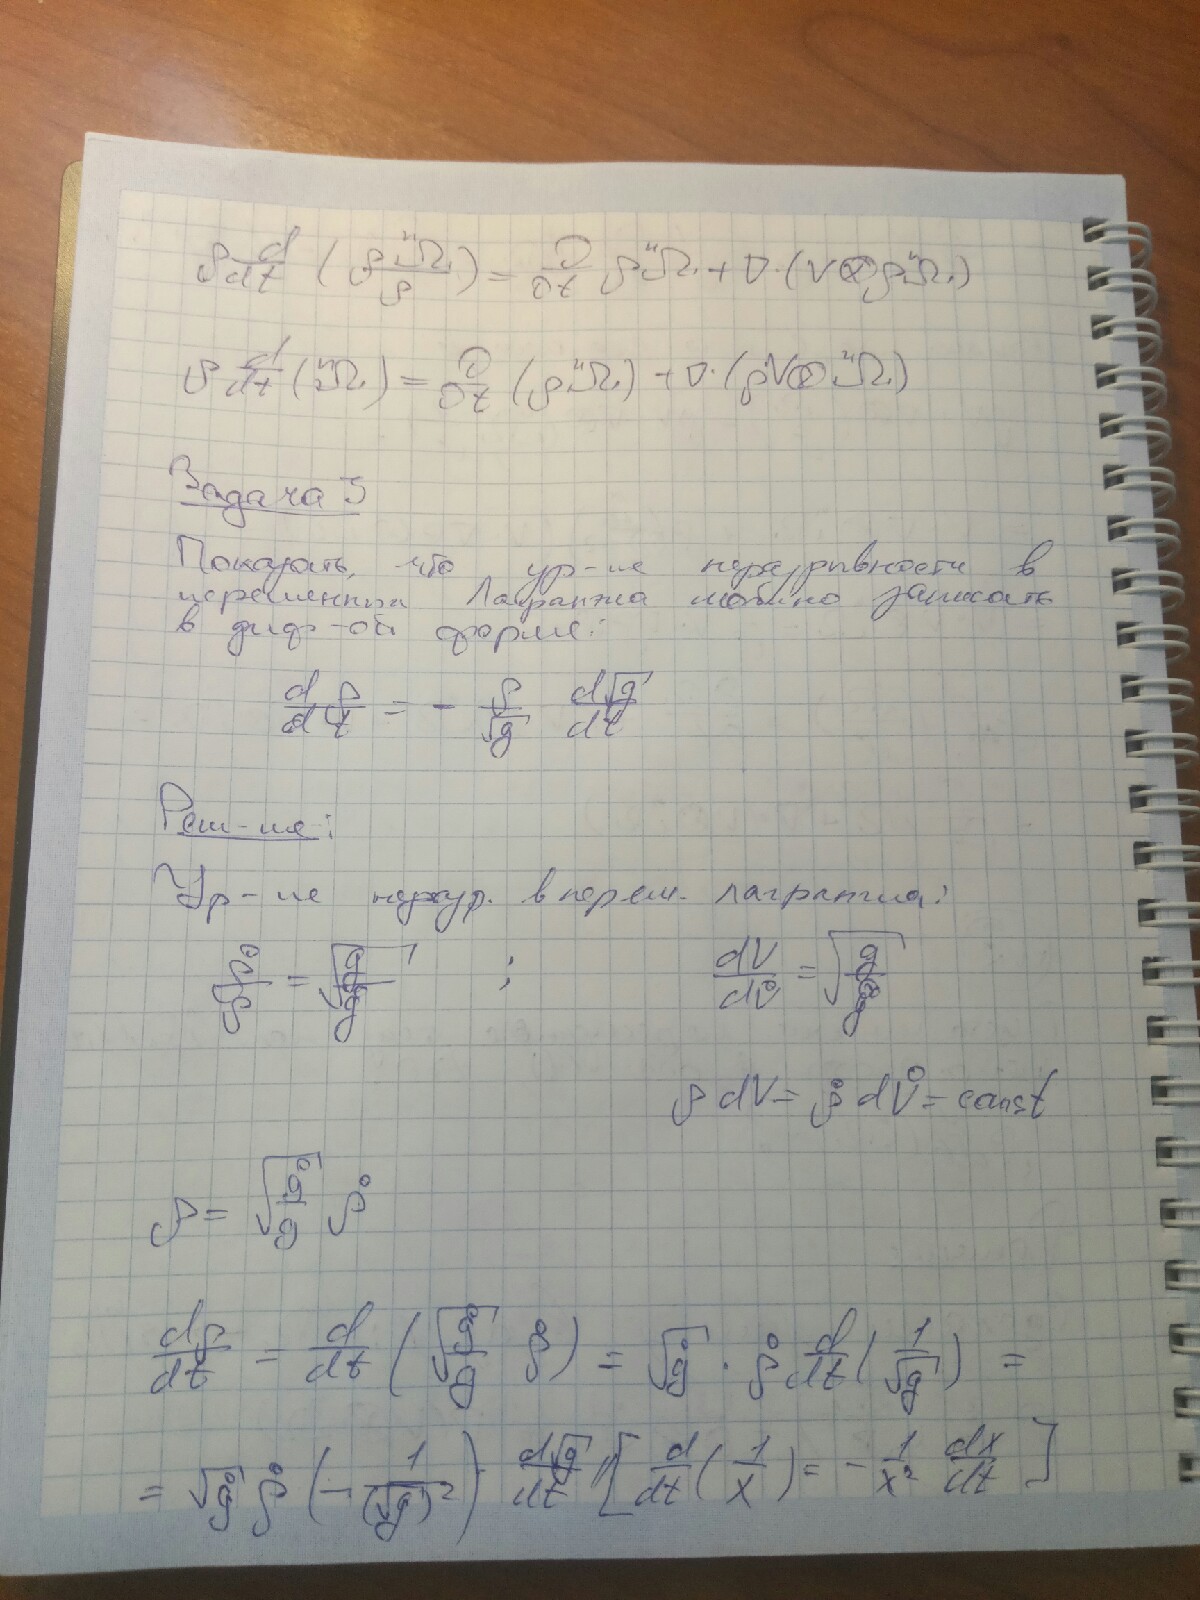 ρ d/dt (ρ ⁿΩ₁/ρ) = ∂/∂t ρ ⁿΩ₁ + ∇·(V⊗ρ ⁿΩ₁)
ρ d/dt (ⁿΩ₁) = ∂/∂t (ρ ⁿΩ₁) + ∇·(ρV⊗ ⁿΩ₁)
Задача 3
Показать, что ур-ие неразрывности в
переменных Лагранжа можно записать
в диф-ой форме:
dρ/dt = - ρ/√g d√g/dt
Реш-ие:
Ур-ие неразр. в перем. лагранжа:
ρ̊/ρ = √(g/g̊) ; dV/dV̊ = √(g/g̊)
ρ dV = ρ̊ dV̊ = const
ρ = √(g̊/g) ρ̊
dρ/dt = d/dt (√(g̊/g) ρ̊) = √g̊ · ρ̊ d/dt (1/√g) =
= √g̊ ρ̊ (- 1/(√g)²) d√g/dt // [d/dt (1/x) = - 1/x² dx/dt]